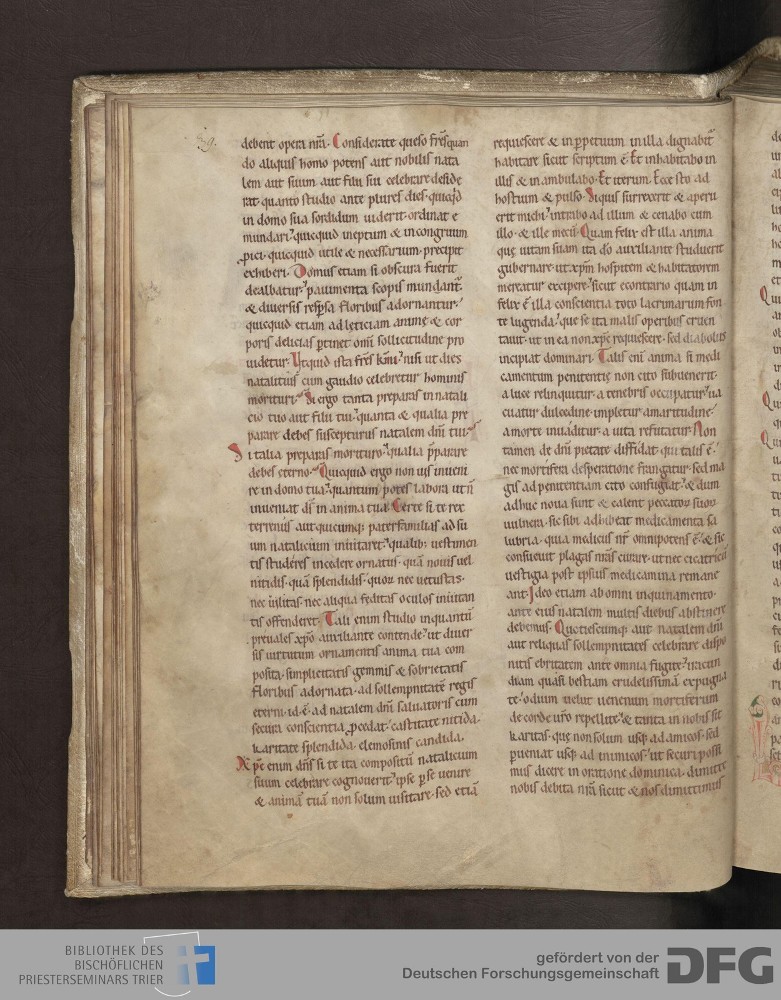 debent opera nr̄a. Considerate queso fr̄es quan
do aliquis homo potens aut nobilis nata
lem aut suum aut filii sui celebrare deside
rat. quanto studio ante plures dies quicq̇d
in domo sua sordidum uiderit. ordinat e
mundari. quicquid ineptum & incongruum
ꝓici. quicquid utile & necessarium. precipit
exhiberi. Domus etiam si obscura fuerit
dealbatur. pauimenta scopis mundant᷑.
& diuersis floribus adornantur.
quicquid etiam ad leticiam anime & cor
poris delicias ꝑtinet omī sollicitudine pro
uidetur. Utquid ista fr̄es kr̄mi. nisi ut dies
natalitius cum gaudio celebretur hominis
morituri. Si ergo tanta preparas in natali
cio tuo aut filii tui. quanta & qualia pre
parare debes suscepturus natalem dn̄i tui.
Si talia preparas morituro. qualia p̄parare
debes eterno. Quicquid ergo non uis inueni
re in domo tua. quantum potes labora ut n̄
inueniat ds̄ in anima tua. Certe si te rex
terrenus aut quicumq; paterfamilias ad su
um natalicium inuitaret. qualib; uestimen
tis studeres incedere ornatus. quā nouis uel
nitidis. quā splendidis. quoꝝ nec uetustas.
nec uilitas. nec aliqua feditas oculos inuitan
tis offenderet. Tali enim studio inquantū
preuales xp̄o auxiliante contende. ut diuer
sis uirtutum ornamentis anima tua com
posita. simplicitatis gemmis & sobrietatis
floribus adornata. ad sollempnitatē regis
eterni. id ē. ad natalem dn̄i saluatoris cum
secura conscientia ꝓcedat. castitate nitida.
karitate splendida. elemosinis candida.
Xp̄c enim dn̄s si te ita compositū natalicium
suum celebrare cognouerit. ipse ꝑ se uenire
& animā tuā non solum uisitare. sed etiā
requiescere & in ꝑpetuum in illa dignabit᷑
habitare sicut scriptum ē. Et inhabitabo in
illis & inambulabo. Et iterum. Ecce sto ad
hostium & pulso. Siquis surrexerit & aperu
erit michi. intrabo ad illum & cenabo cum
illo. & ille mecū. Quam felix est illa anima
quę uitam suam ita do auxiliante studuerit
gubernare. ut xp̄m hospitem & habitatorem
mereatur excipere. sicut econtrario quam in
felix ē illa conscientia toto lacrimarum fon
te lugenda. que se ita malis operibus cruen
tauit. ut in ea non xp̄c requiescere. sed diabolus
incipiat dominari. Talis eni᷑ anima si medi
camentum penitentię non cito subuenerit.
a luce relinquitur. a tenebris occupatur. ua
cuatur dulcedine. impletur amaritudine.
a morte inuaditur. a uita refutatur. Non
tamen de dn̄i pietate diffidat qui talis ē.
nec mortifera desperatione frangatur. sed ma
gis ad penitentiam cito confugiat. & dum
adhuc noua sunt & calent peccatoꝝ suoꝝ
uulnera. sic sibi adhibeat medicamenta sa
lubria. quia medicus nr̄ omnipotens ē. & sic
consueuit plagas nr̄as curare. ut nec cicatricū
uestigia post ipsius medicamina remane
ant. Ideo etiam ab omni inquinamento.
ante eius natalem multis diebus abstinere
debemus. Quotiescumq; aut natalem dn̄i
aut reliquas sollempnitates celebrare dispo
nitis ebritatem ante omnia fugite. iracun
diam quasi bestiam crudelissimā expugna
te. odium uelut uenenum mortiferum
de corde ur̄o repellite. & tanta in nobis sit
karitas. quę non solum usq; ad amicos. sed
ꝑueniat usq; ad inimicos. ut securi possi
mus dicere in oratione dominica. dimitte
nobis debita nr̄a sicut & nos dimittimus
BIBLIOTHEK DES
BISCHÖFLICHEN
PRIESTERSEMINARS TRIER
gefördert von der
Deutschen Forschungsgemeinschaft
DFG